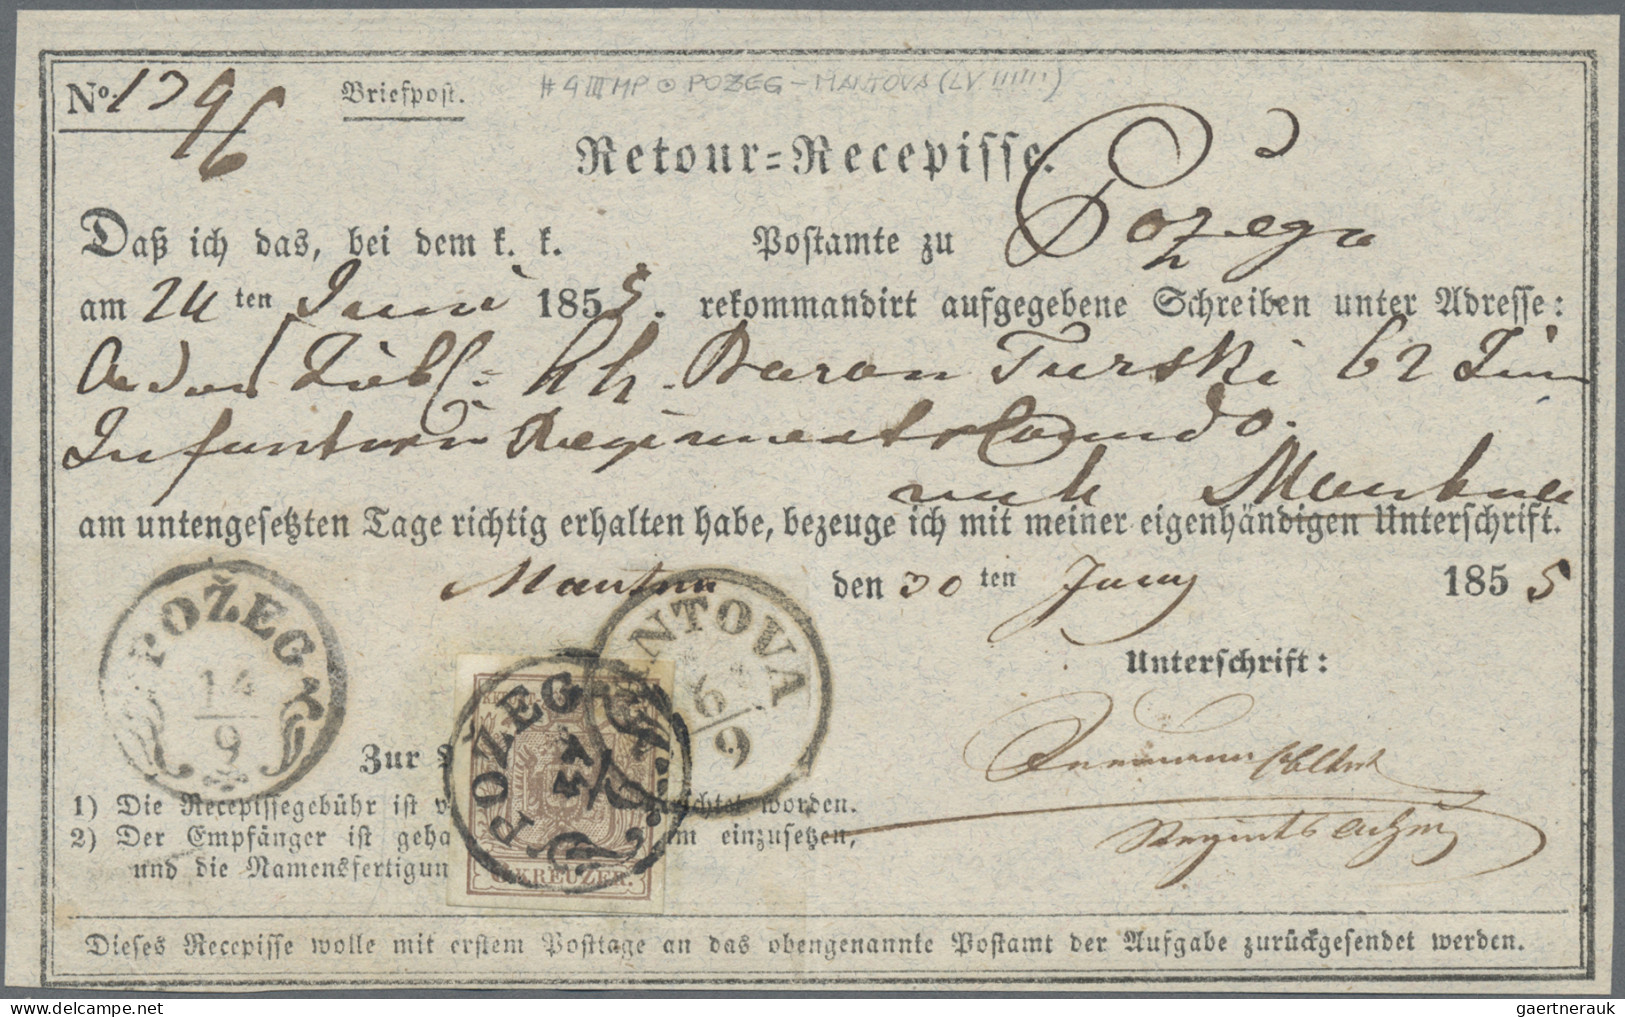 No. 1796 Briefpost. # 4 III MP ⊙ POŽEG – MANTOVA (LV !!!!!!)
Retour=Recepisse.
Daß ich das, bei dem k. k. Postamte zu Požega
am 24 ten Juni 1855. rekommandirt aufgegebene Schreiben unter Adresse:
löbl: kk. Baron Turski 62 Lin
Infanterie Regiments Comdo.
nach Mantua
am untengesetzten Tage richtig erhalten habe, bezeuge ich mit meiner eigenhändigen Unterschrift.
Mantua den 30 ten Juny 1855
POŽEGA
14
9
NTOVA
6
9
Unterschrift:
POŽEG
Zur
1) Die Recepissegebühr ist worden.
2) Der Empfänger ist einzusetzen,
und die
KREUZER.
Dieses Recepisse wolle mit erstem Posttage an das obengenannte Postamt der Aufgabe zurückgesendet werden.
gaertnerauk